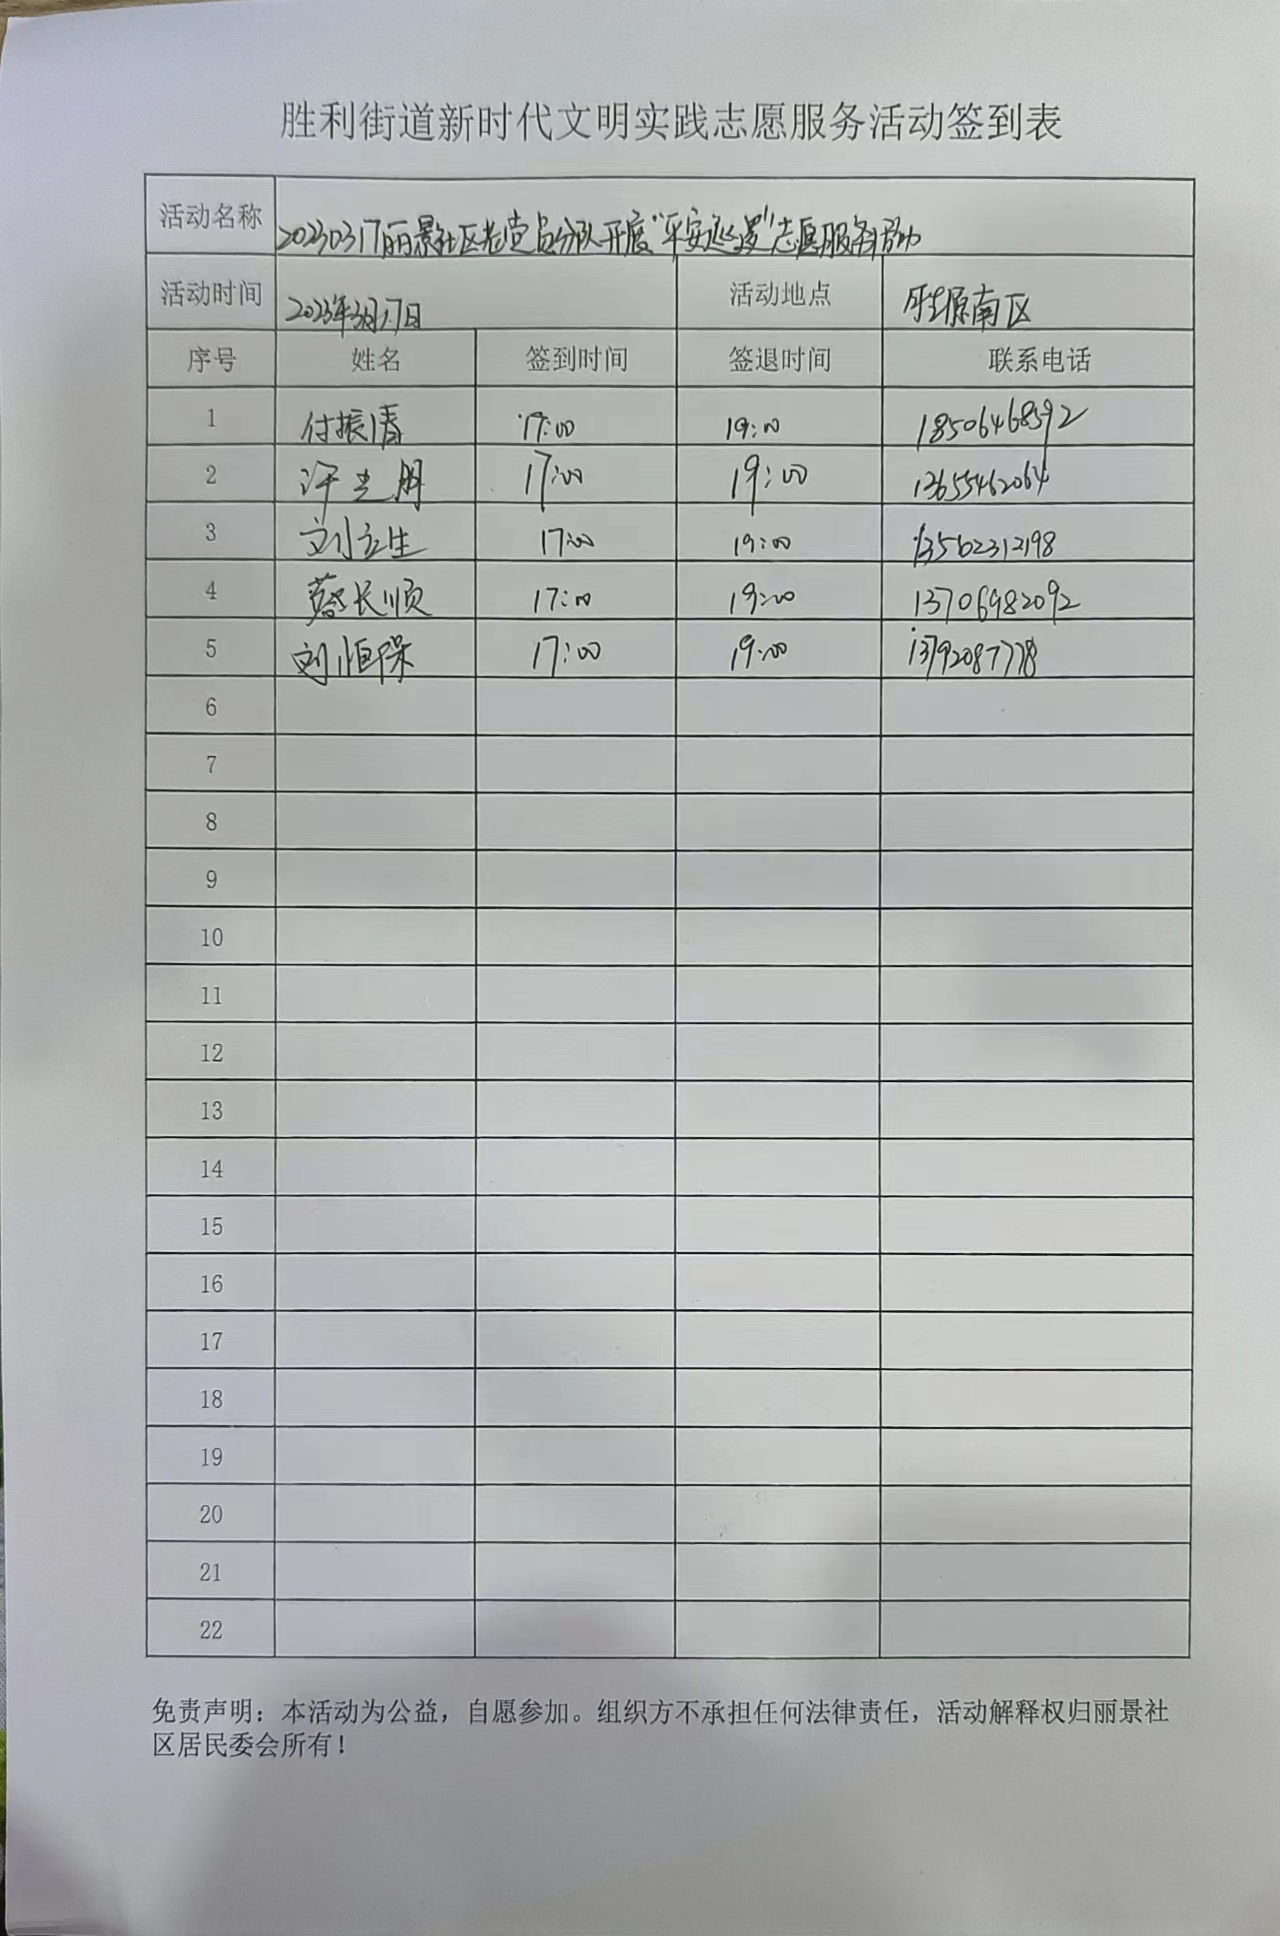 胜利街道新时代文明实践志愿服务活动签到表
活动名称 20230317丽景社区老党员分队开展“平安巡逻”志愿服务活动
活动时间 2023年3月17日 活动地点 胜原南区
序号 姓名 签到时间 签退时间 联系电话
1 付振清 17:00 19:00 18506468592
2 17:00 19:00 13655462064
3 刘立生 17:00 19:00 13562312198
4 蔡长顺 17:00 19:00 13706982092
5 刘恒保 17:00 19:00 13792087778
6
7
8
9
10
11
12
13
14
15
16
17
18
19
20
21
22
免责声明：本活动为公益，自愿参加。组织方不承担任何法律责任，活动解释权归丽景社
区居民委会所有！